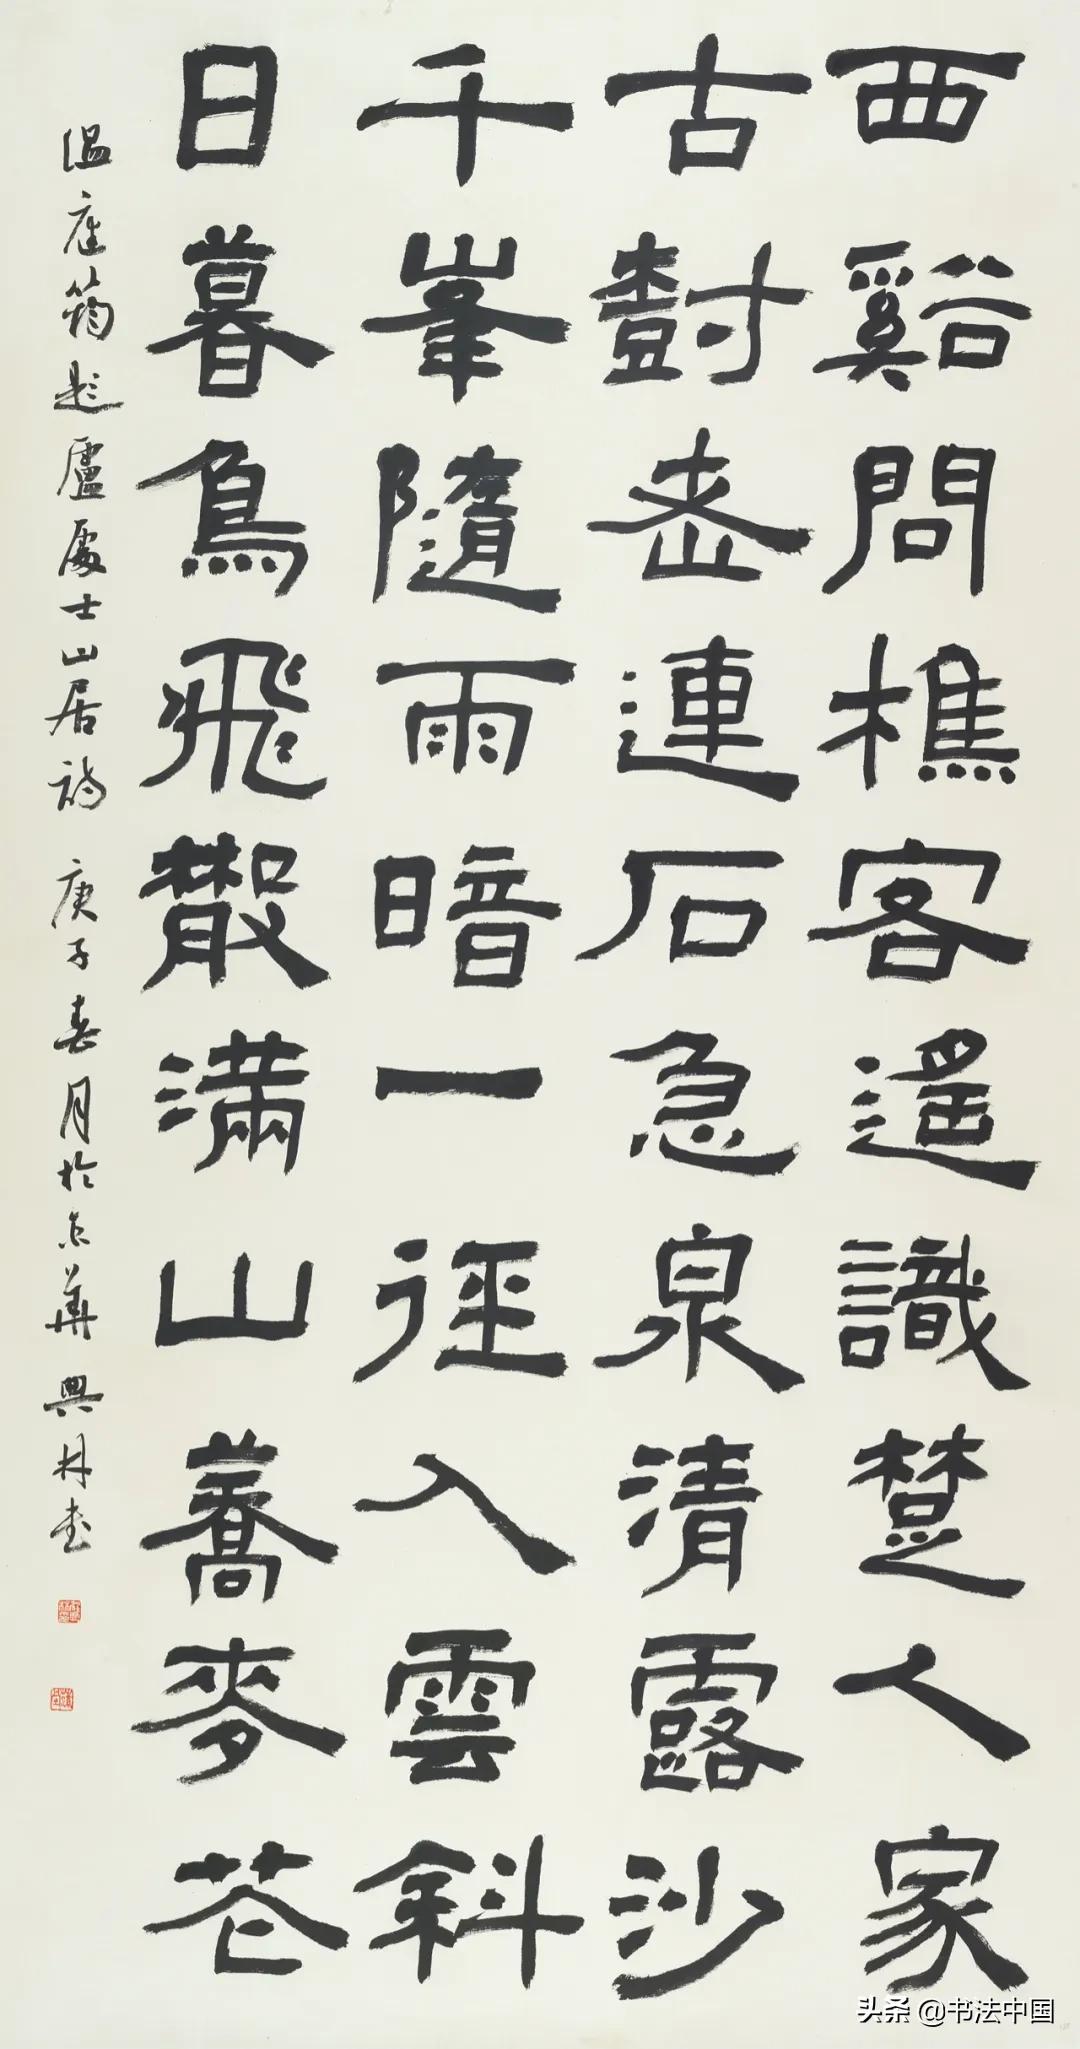 西谿問樵客遙識楚人家
古尌峚連石急泉清露沙
千峯隨雨暗一徑入雲斜
日暮鳥飛散滿山蕎麥花
溫庭筠題盧處士山居詩 庚子春月於京華 興林書
头条 @书法中国